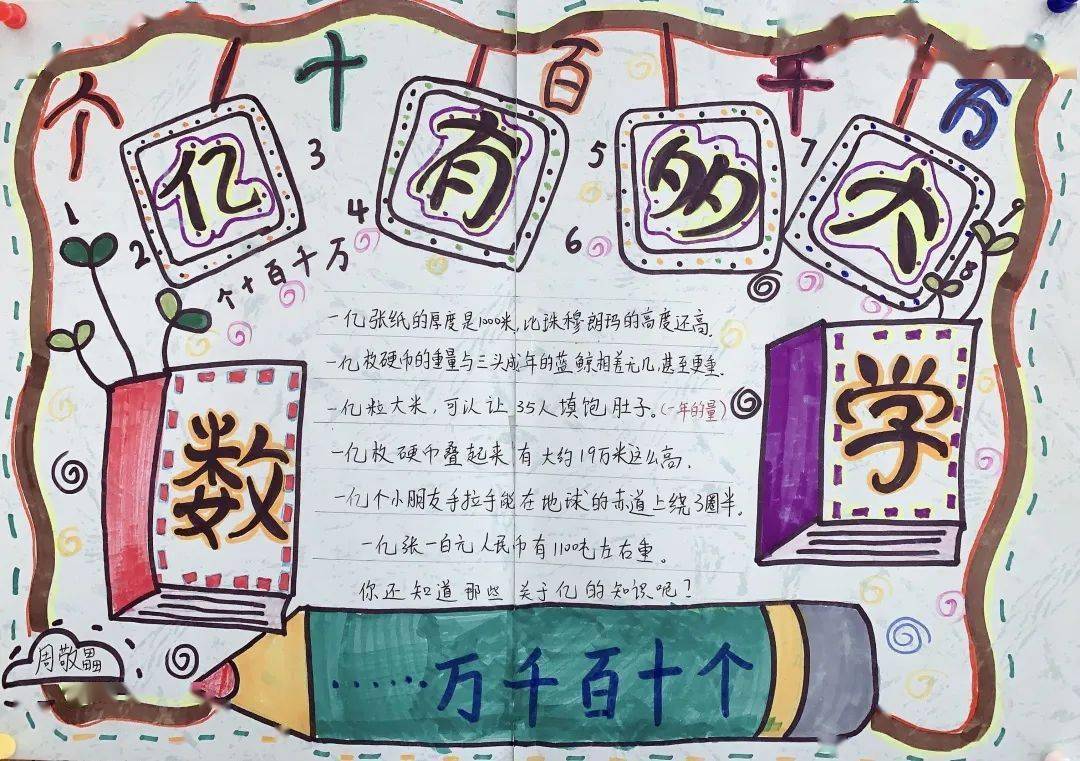 个 十 百 千 万
亿有多大
1 2 3 4 5 6 7 8 9
个十百千万
数学
一亿张纸的厚度是1000米,比珠穆朗玛的高度还高.
一亿枚硬币的重量与三头成年的蓝鲸相差无几,甚至更重.
一亿粒大米,可以让35人填饱肚子。(一年的量)
一亿枚硬币叠起来有大约19万米这么高.
一亿个小朋友手拉手能在地球的赤道上绕3圈半.
一亿张一百元人民币有1100吨左右重。
你还知道那些关于亿的知识呢?
周敬畾
······万千百十个